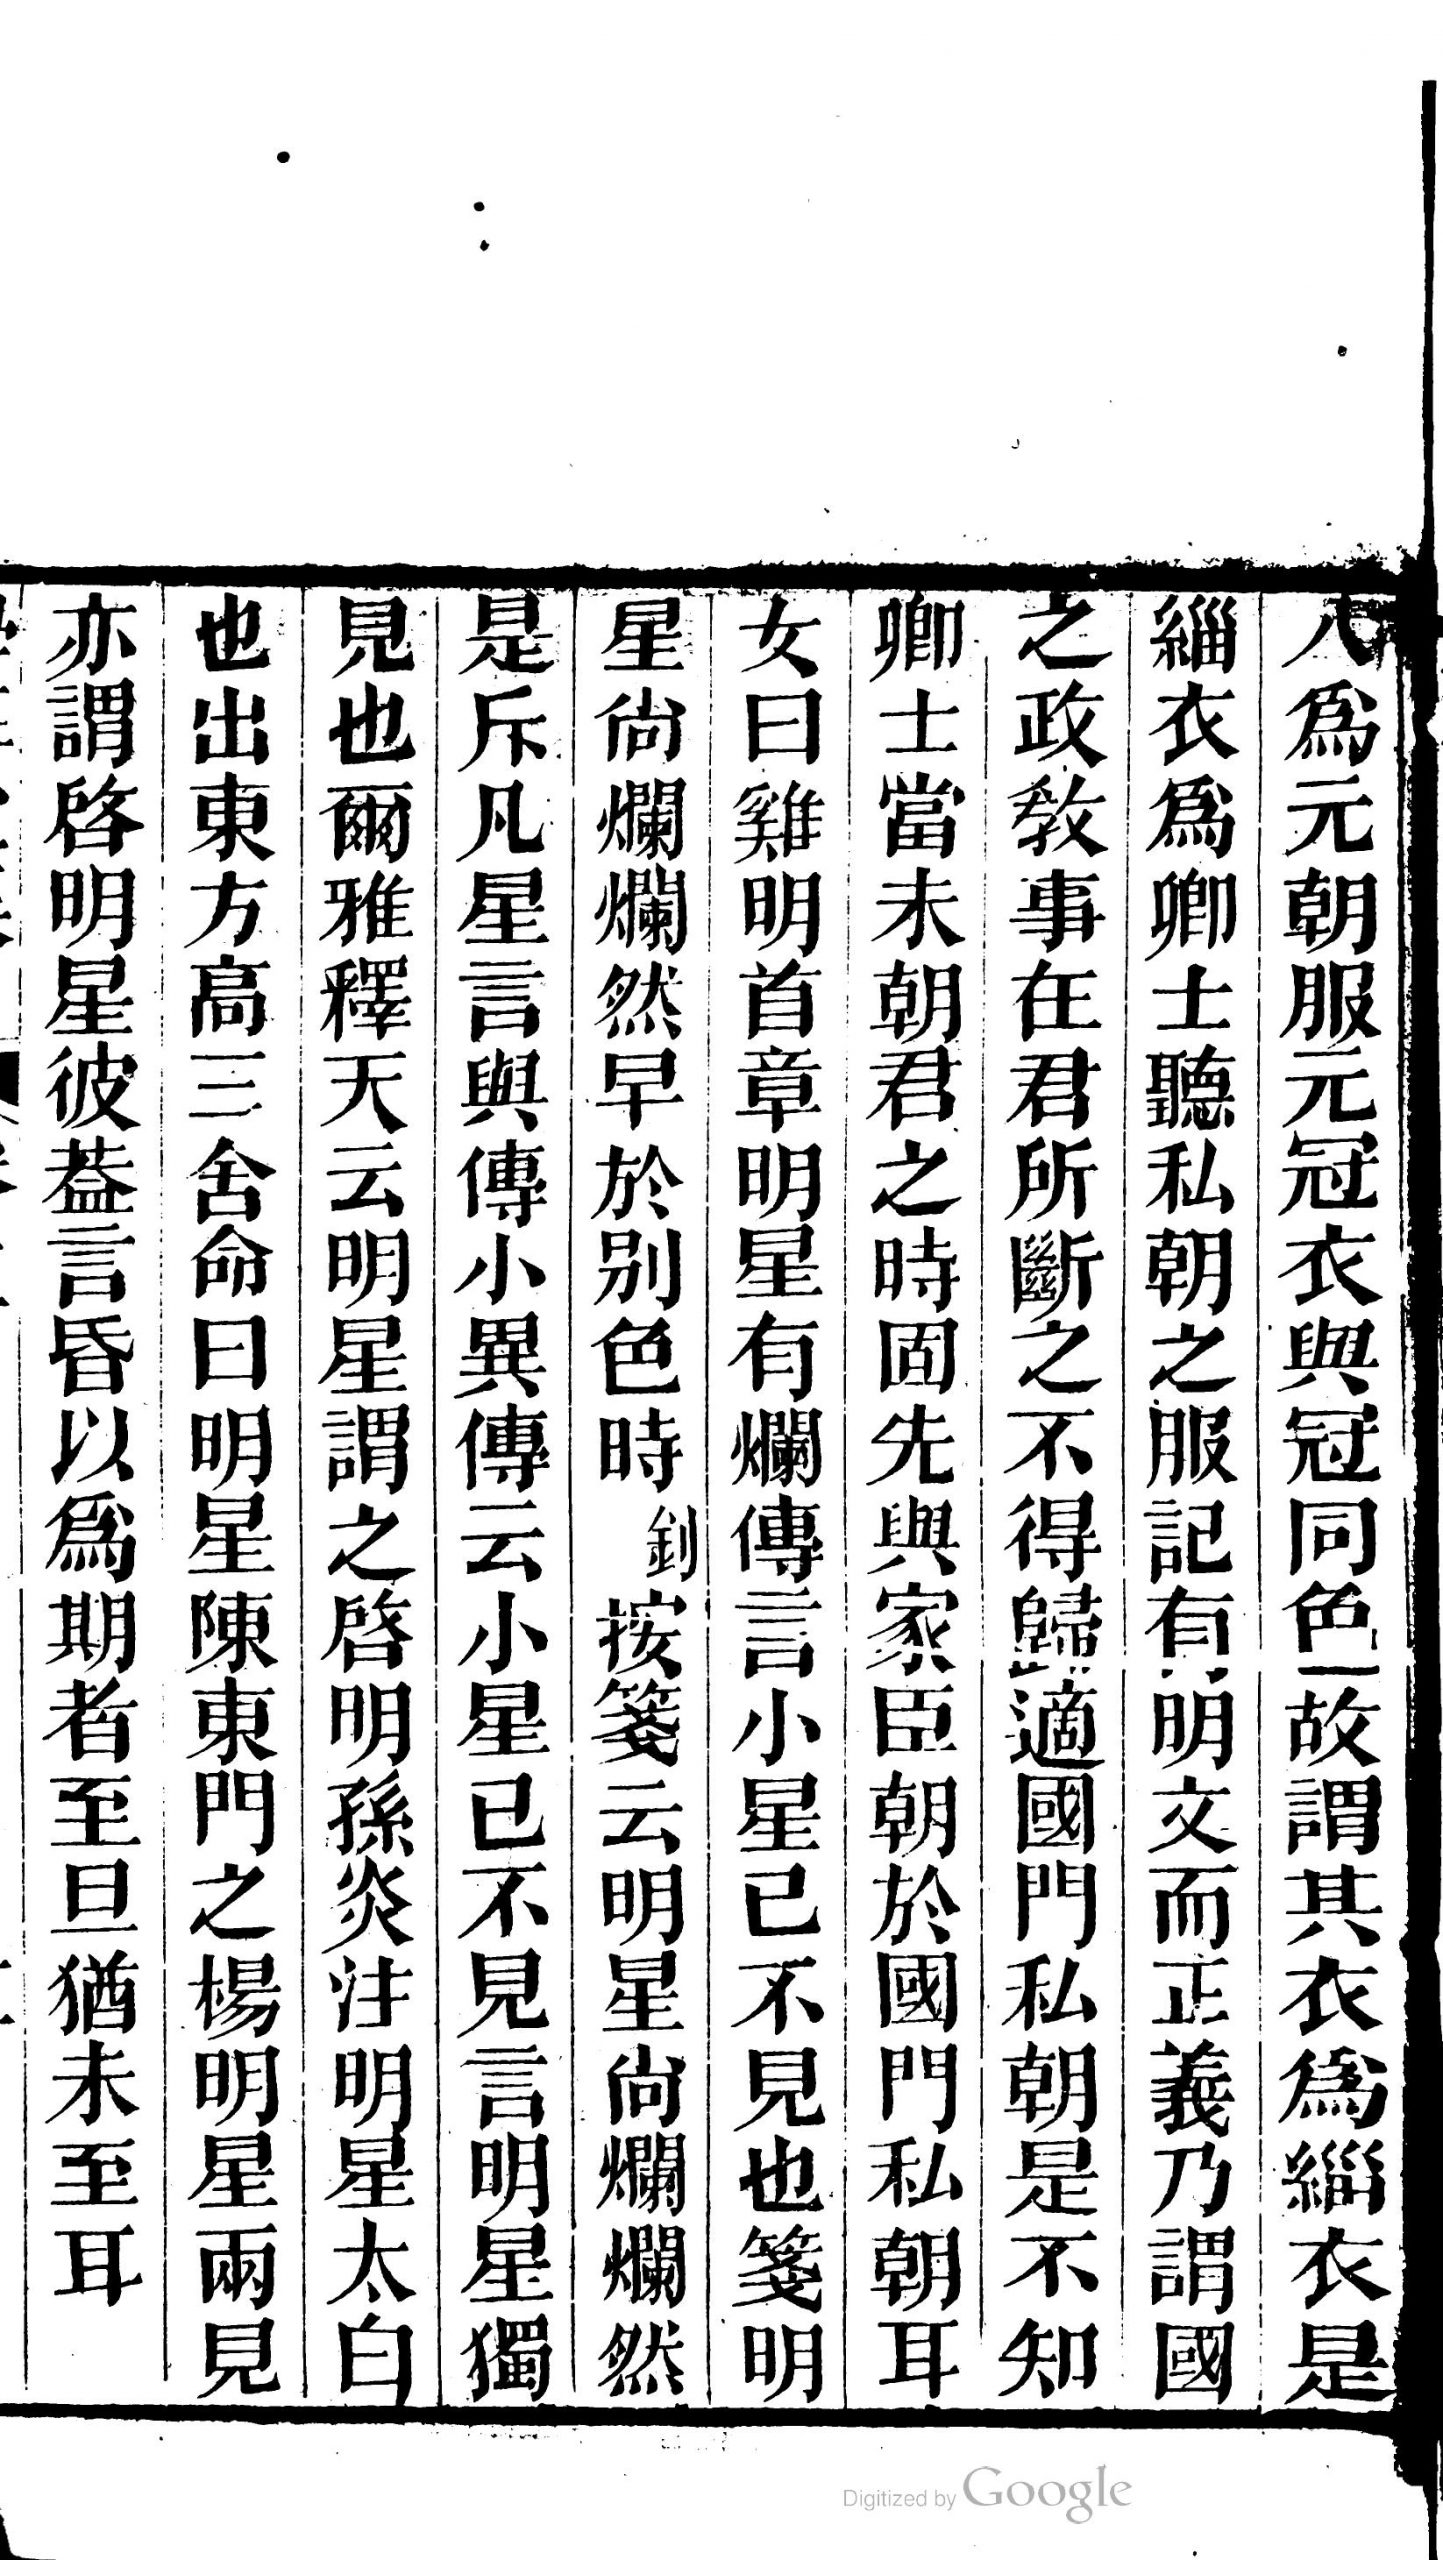 八為元朝服元冠衣與冠同色故謂其衣為緇衣是
緇衣為卿士聽私朝之服記有明文而正義乃謂國
之政敎事在君所斷之不得歸適國門私朝是不知
卿士當未朝君之時固先與家臣朝於國門私朝耳
女曰雞明首章明星有爛傳言小星已不見也箋明
星尚爛爛然早於別色時釗按箋云明星尚爛爛然
是斥凡星言與傳小異傳云小星已不見言明星獨
見也爾雅釋天云明星謂之啓明孫炎注明星太白
也出東方高三舍命曰明星陳東門之楊明星兩見
亦謂啓明星彼葢言昏以為期者至旦猶未至耳
Digitized by Google